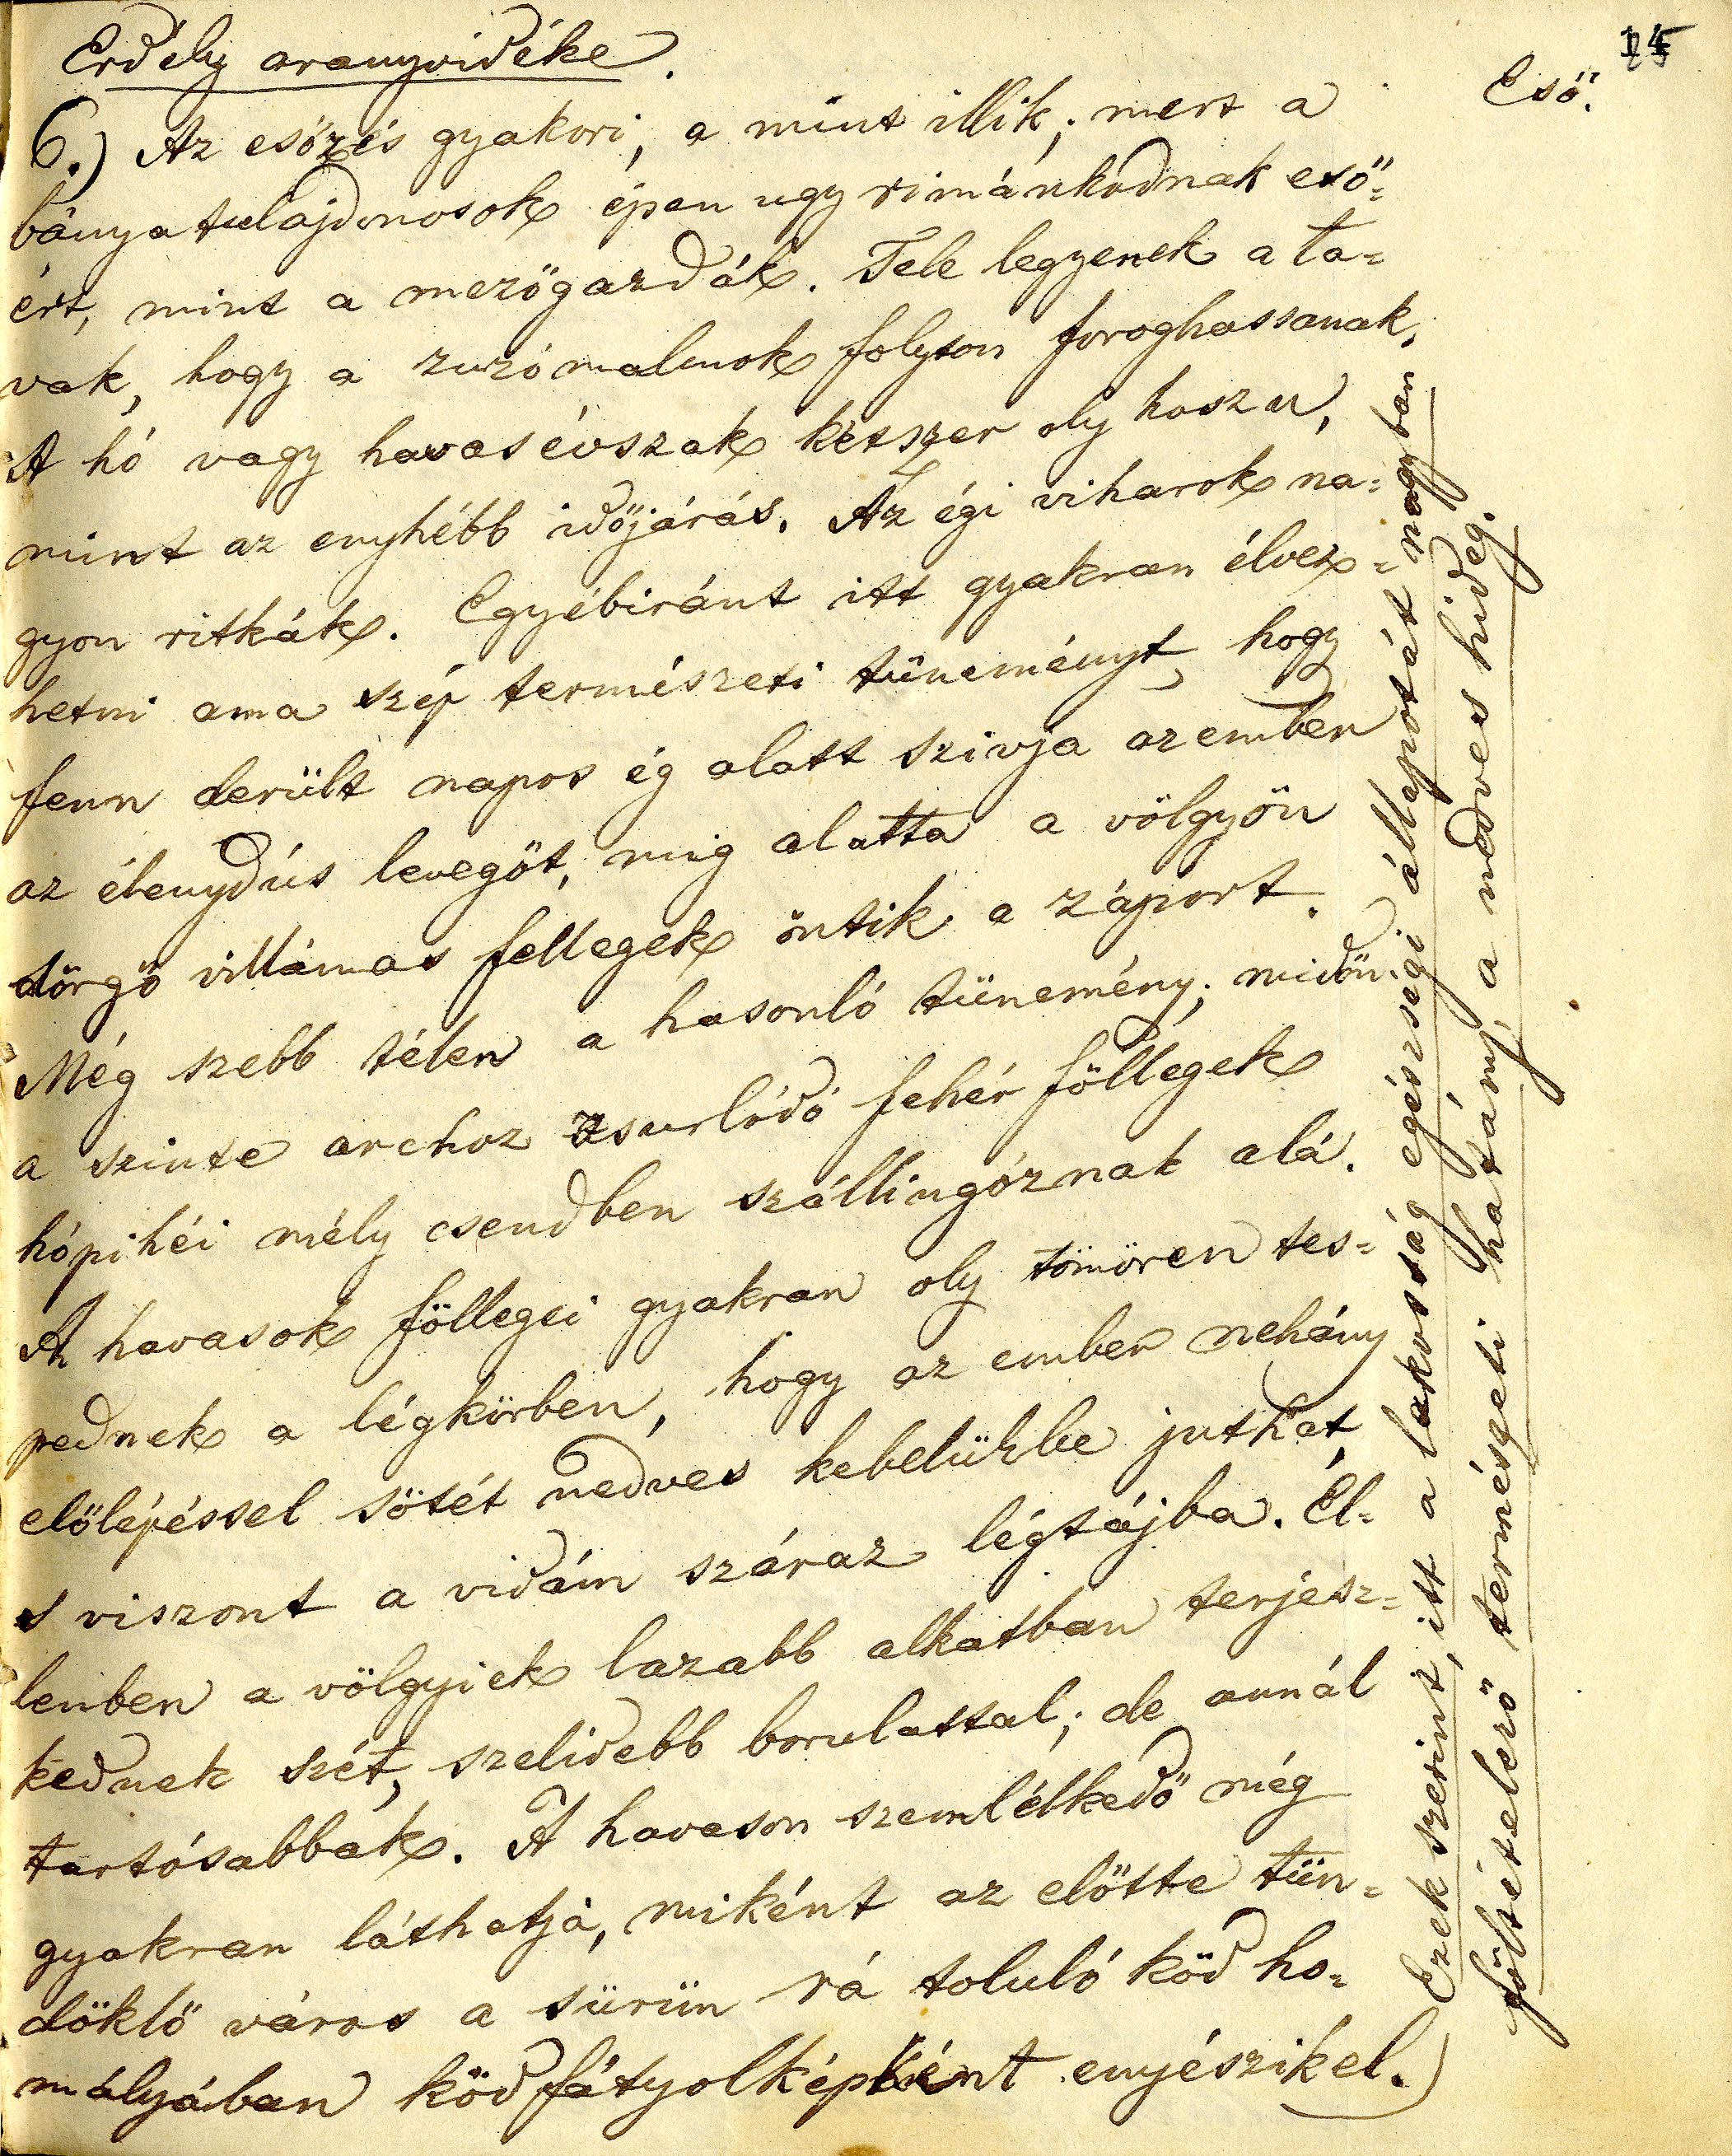 Erdély aranyvidéke.
Eső.
6.) Az esőzés gyakori, a mint illik; mert a
bányatulajdonosok épen ugy rimánkodnak eső=
ért, mint a mezőgazdák. Tele legyenek a ta=
vak, hogy a zuzómalmok folyton foroghassanak.
A hó vagy havasévszak kétszer oly hoszu,
mint az enyhébb időjárás. Az égi viharok na=
gyon ritkák. Egyébiránt itt gyakran élvez=
hetni ama szép természeti tüneményt, hogy
fenn derült napos ég alatt szivja azember
az élenydús levegőt, mig alatta a völgyön
dörgő villámas fellegek öntik a záport.
Még szebb télen a hasonló tünemény; midőn
a szinte archoz zsurlódó fehér föllegek
hópihéi mély csendben szállingóznak alá.
A havasok föllegei gyakran oly tömören tes=
pednek a légkörben, hogy az ember nehány
előlépéssel sötét nedves kebelükbe juthat,
s viszont a vidám száraz légtájba. El=
lenben a völgyiek lazabb alkatban terjesz=
kednek szét, szelidebb borulattal; de annál
tartósabbak. A havason szemlélkedő még
gyakran láthatja, miként az előtte tün=
döklő város a sürün rá toluló köd ho=
mályában ködfátyolképként enyészikel.)
Ezek szerint, itt a lakosság egészségi állapotát nagyban
föltételező természeti hatány, a nedves hideg.